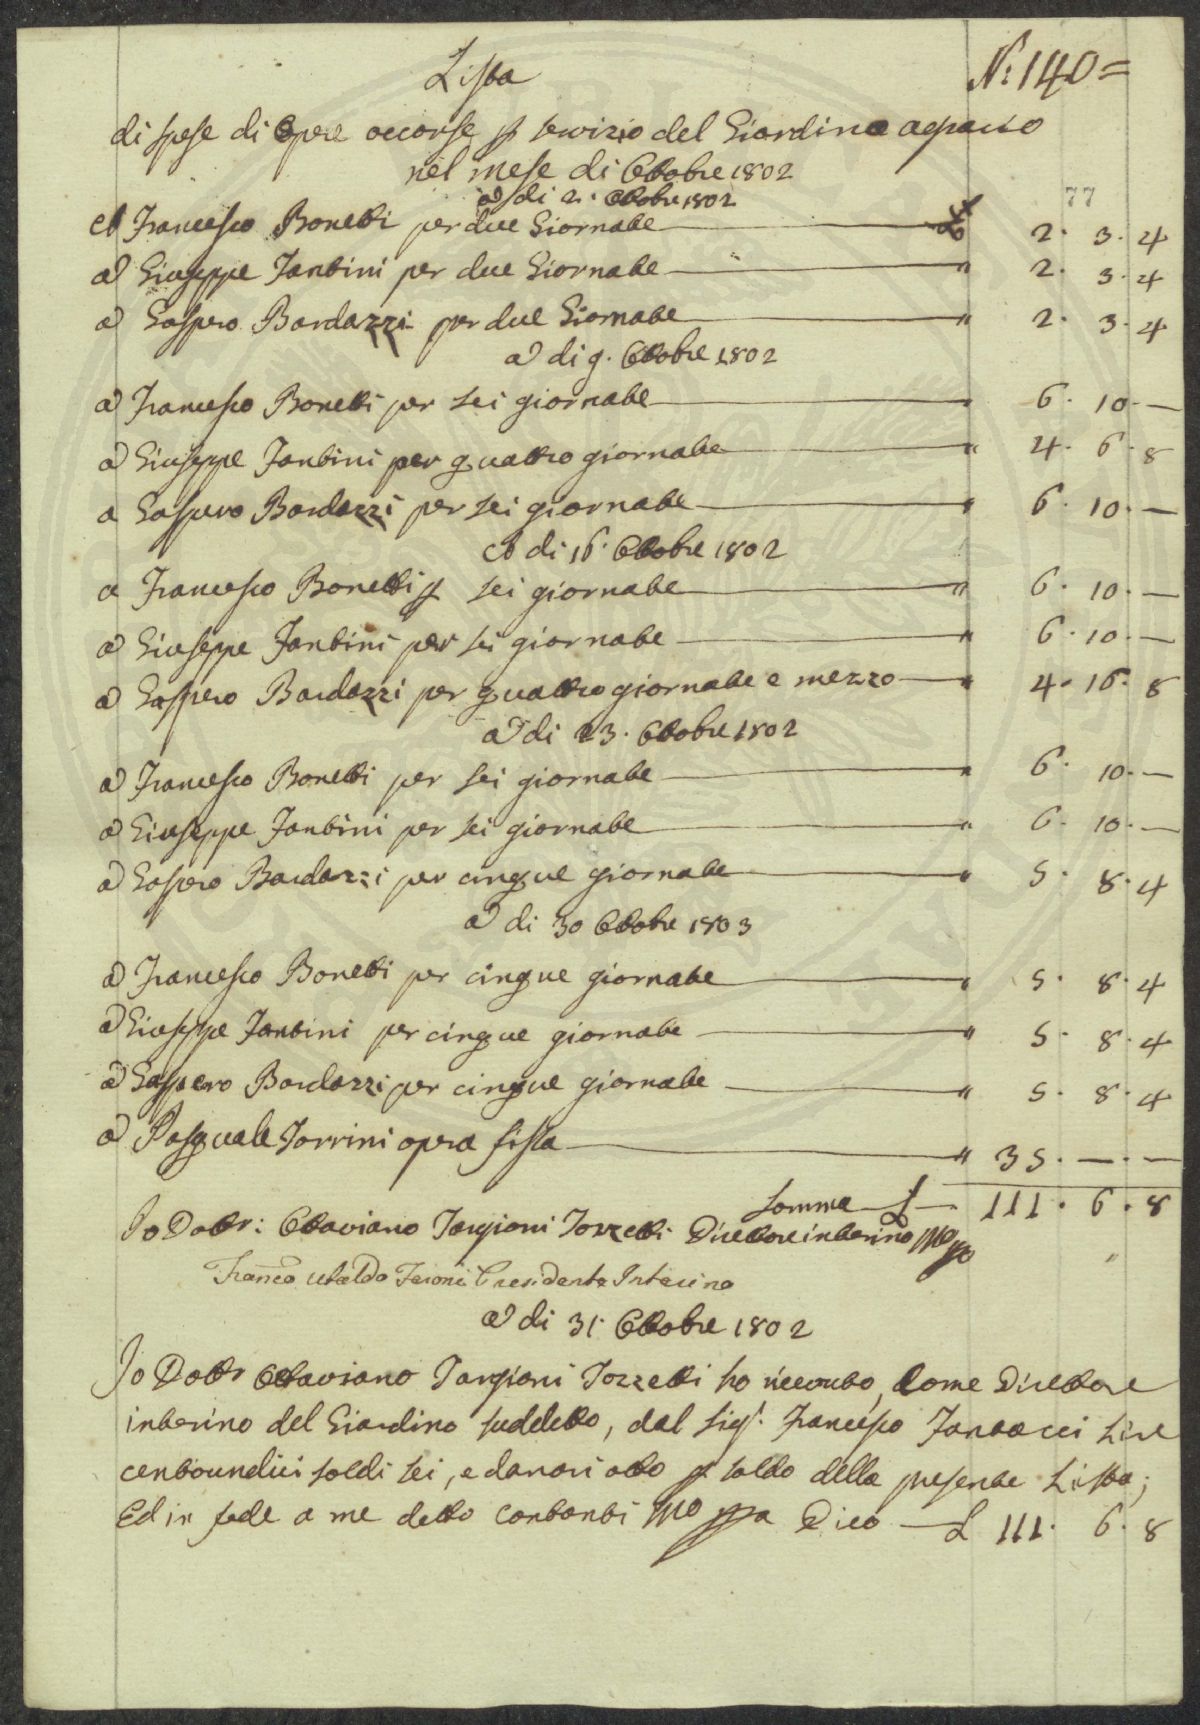 Lista
N: 140=
di spese di Opere occorse p servizio del Giardino agrario
nel mese di Ottobre 1802
77
a di 2. Ottobre 1802
A Francesco Bonetti per due Giornate £ 2. 3. 4
a Giuseppe Fantini per due Giornate " 2. 3. 4
a Gaspero Bardazzi per due Giornate " 2. 3. 4
a di 9. Ottobre 1802
a Francesco Bonetti per sei giornate " 6. 10. —
a Giuseppe Fantini per quattro giornate " 4. 6. 8
a Gaspero Bardazzi per sei giornate " 6. 10. —
A di 16. Ottobre 1802
a Francesco Bonetti p sei giornate " 6. 10. —
a Giuseppe Fantini per sei giornate " 6. 10. —
a Gaspero Bardazzi per quattro giornate e mezzo " 4. 16. 8
a di 23. Ottobre 1802
a Francesco Bonetti per sei giornate " 6. 10. —
a Giuseppe Fantini per sei giornate " 6. 10. —
a Gaspero Bardazzi per cinque giornate " 5. 8. 4
a di 30 Ottobre 1803
a Francesco Bonetti per cinque giornate " 5. 8. 4
a Giuseppe Fantini per cinque giornate " 5. 8. 4
a Gaspero Bardazzi per cinque giornate " 5. 8. 4
a Pasquale Torrini opera fissa " 35. — . —
Somma £ 111. 6. 8
Io Dottr: Ottaviano Targioni Tozzetti Direttore interino mo ppo
Franco Ubaldo Feroni Presidente Interino
a di 31 Ottobre 1802
Io Dottr Ottaviano Targioni Tozzetti ho ricevuto, come Direttore
interino del Giardino suddetto, dal Sigr. Francesco Lire
centoundici soldi sei, e danari otto p saldo della presente Lista;
Ed in fede a me detto contanti mo ppa Dico £ 111. 6. 8